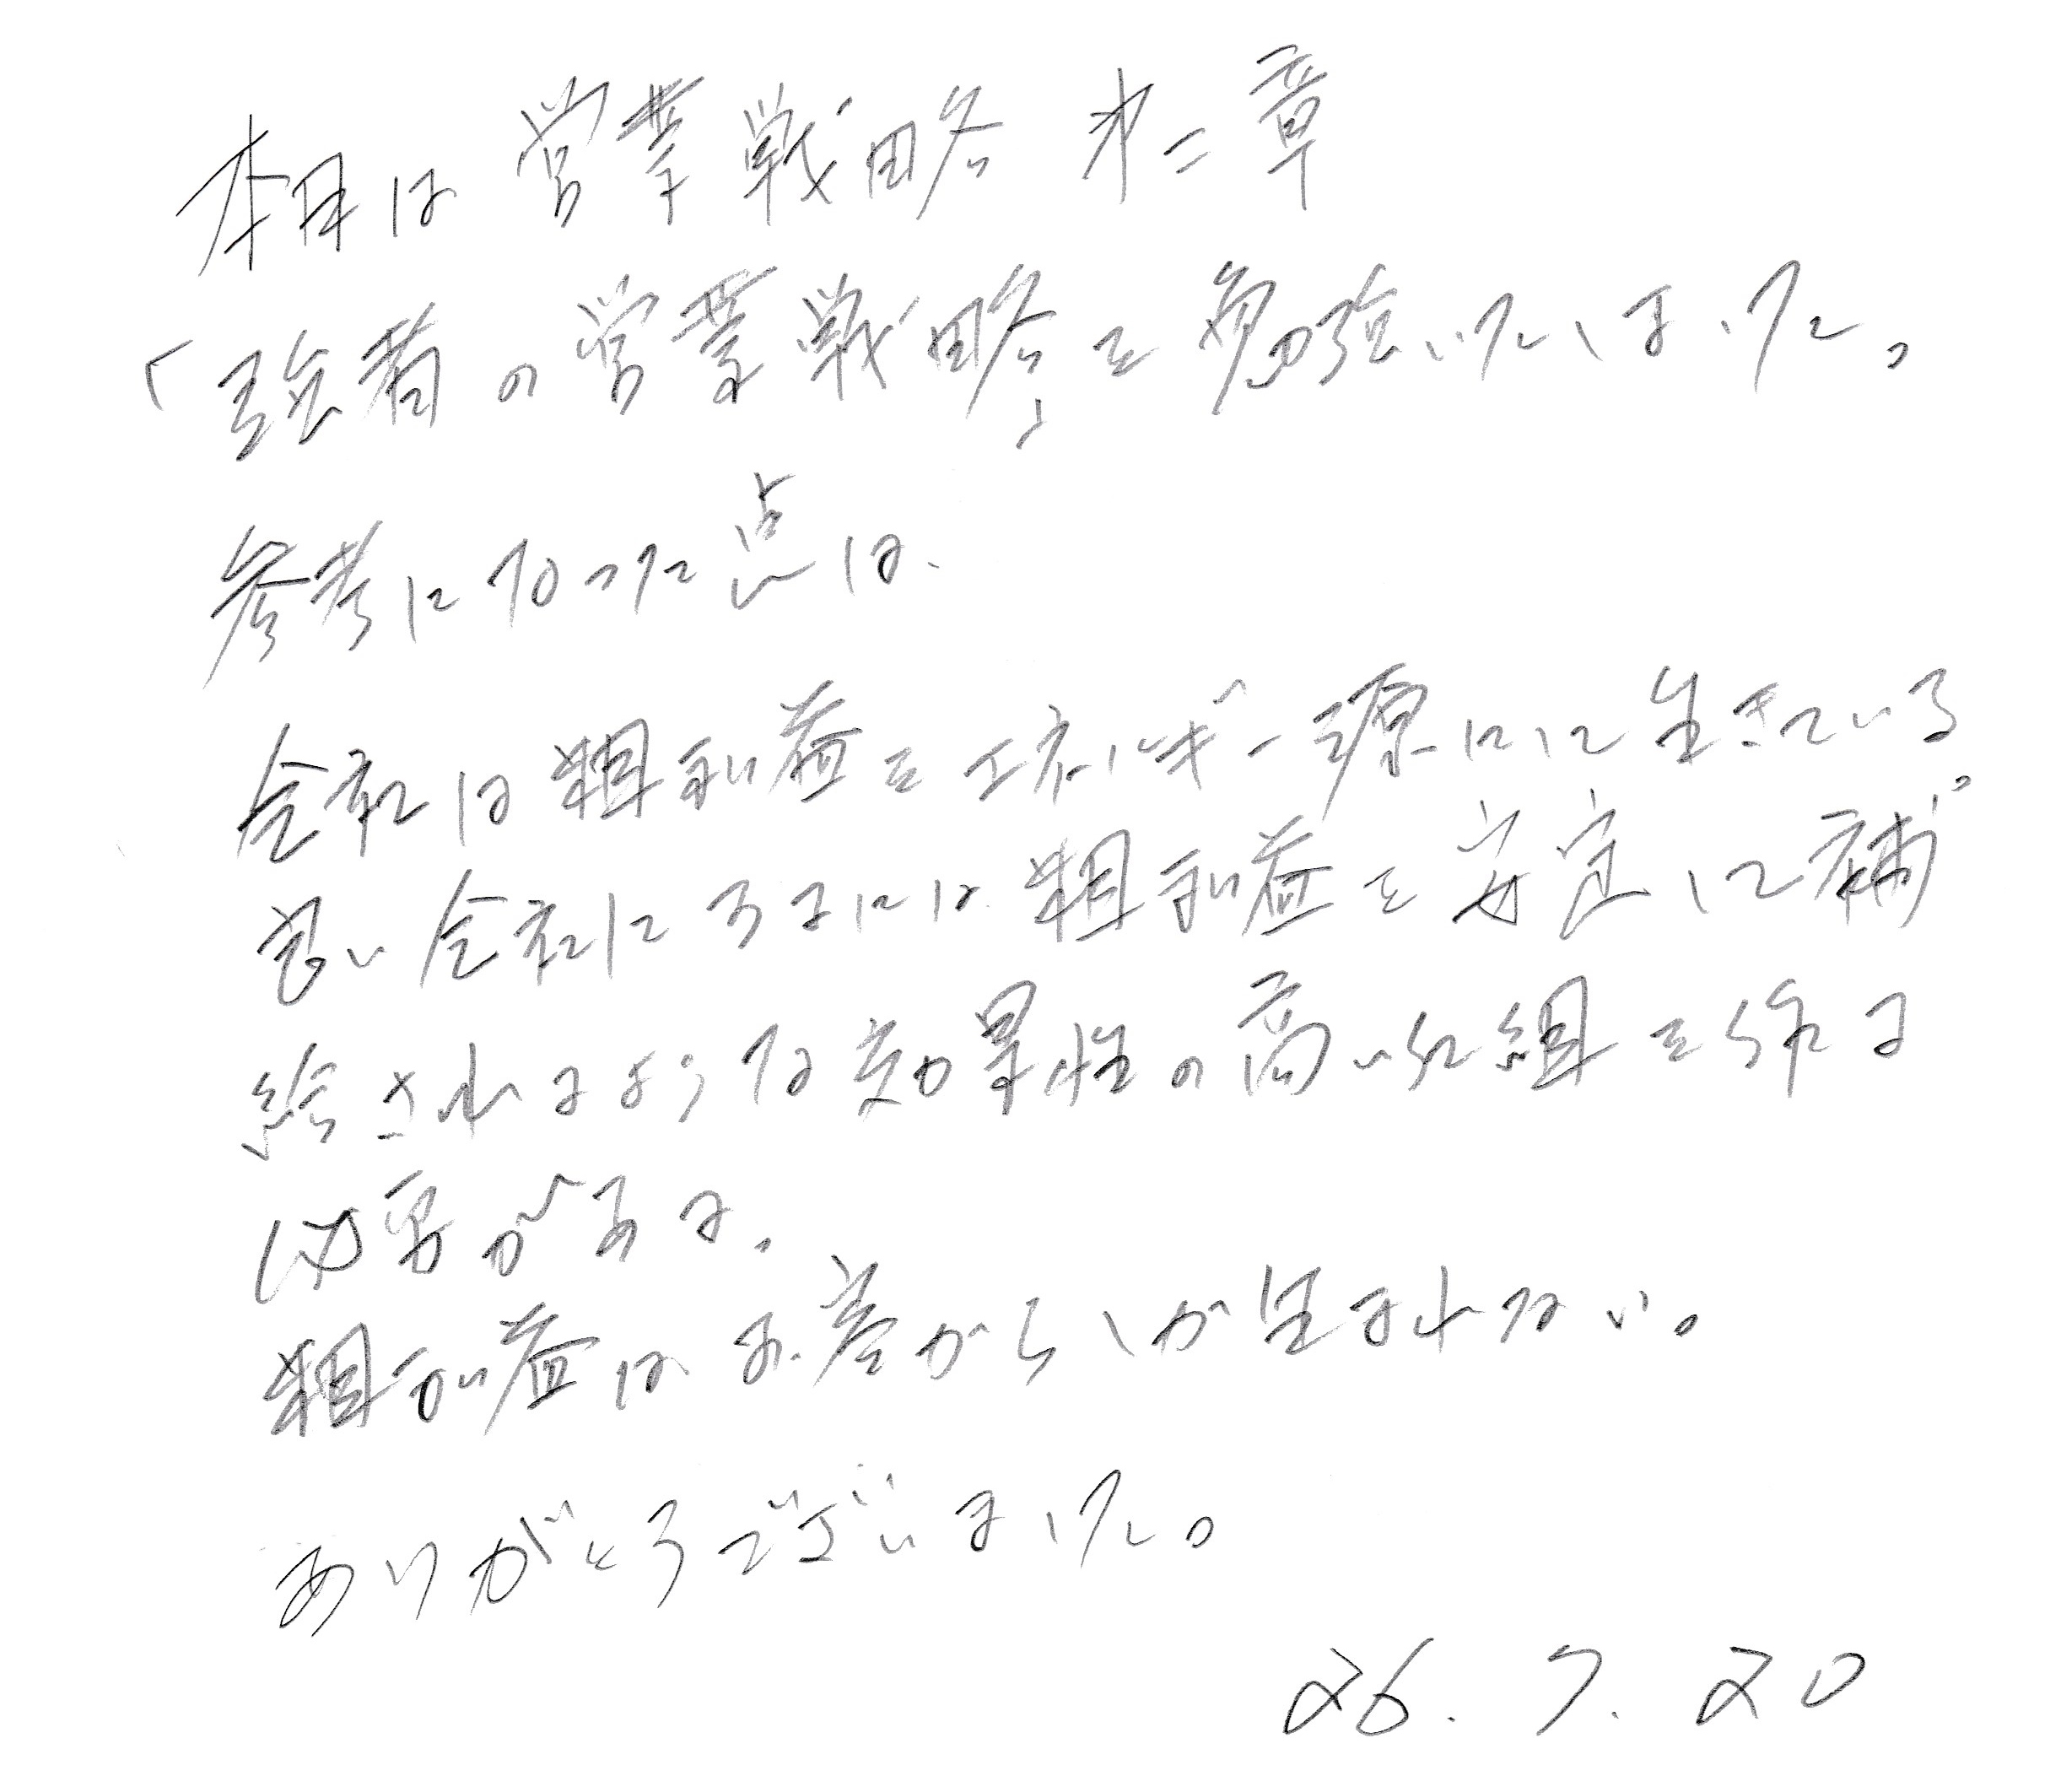 本日は営業戦略 オ二章
「強者の営業戦略」を勉強いたしました。
参考になった点は、
会社は粗利益をエネルギー源にして生きている。
良い会社にするには、粗利益を安定して補
給されるような効率性の高い仕組を作る
必要がある。
粗利益は、差からしか生まれない。
ありがとうございました。
26. 7. 20